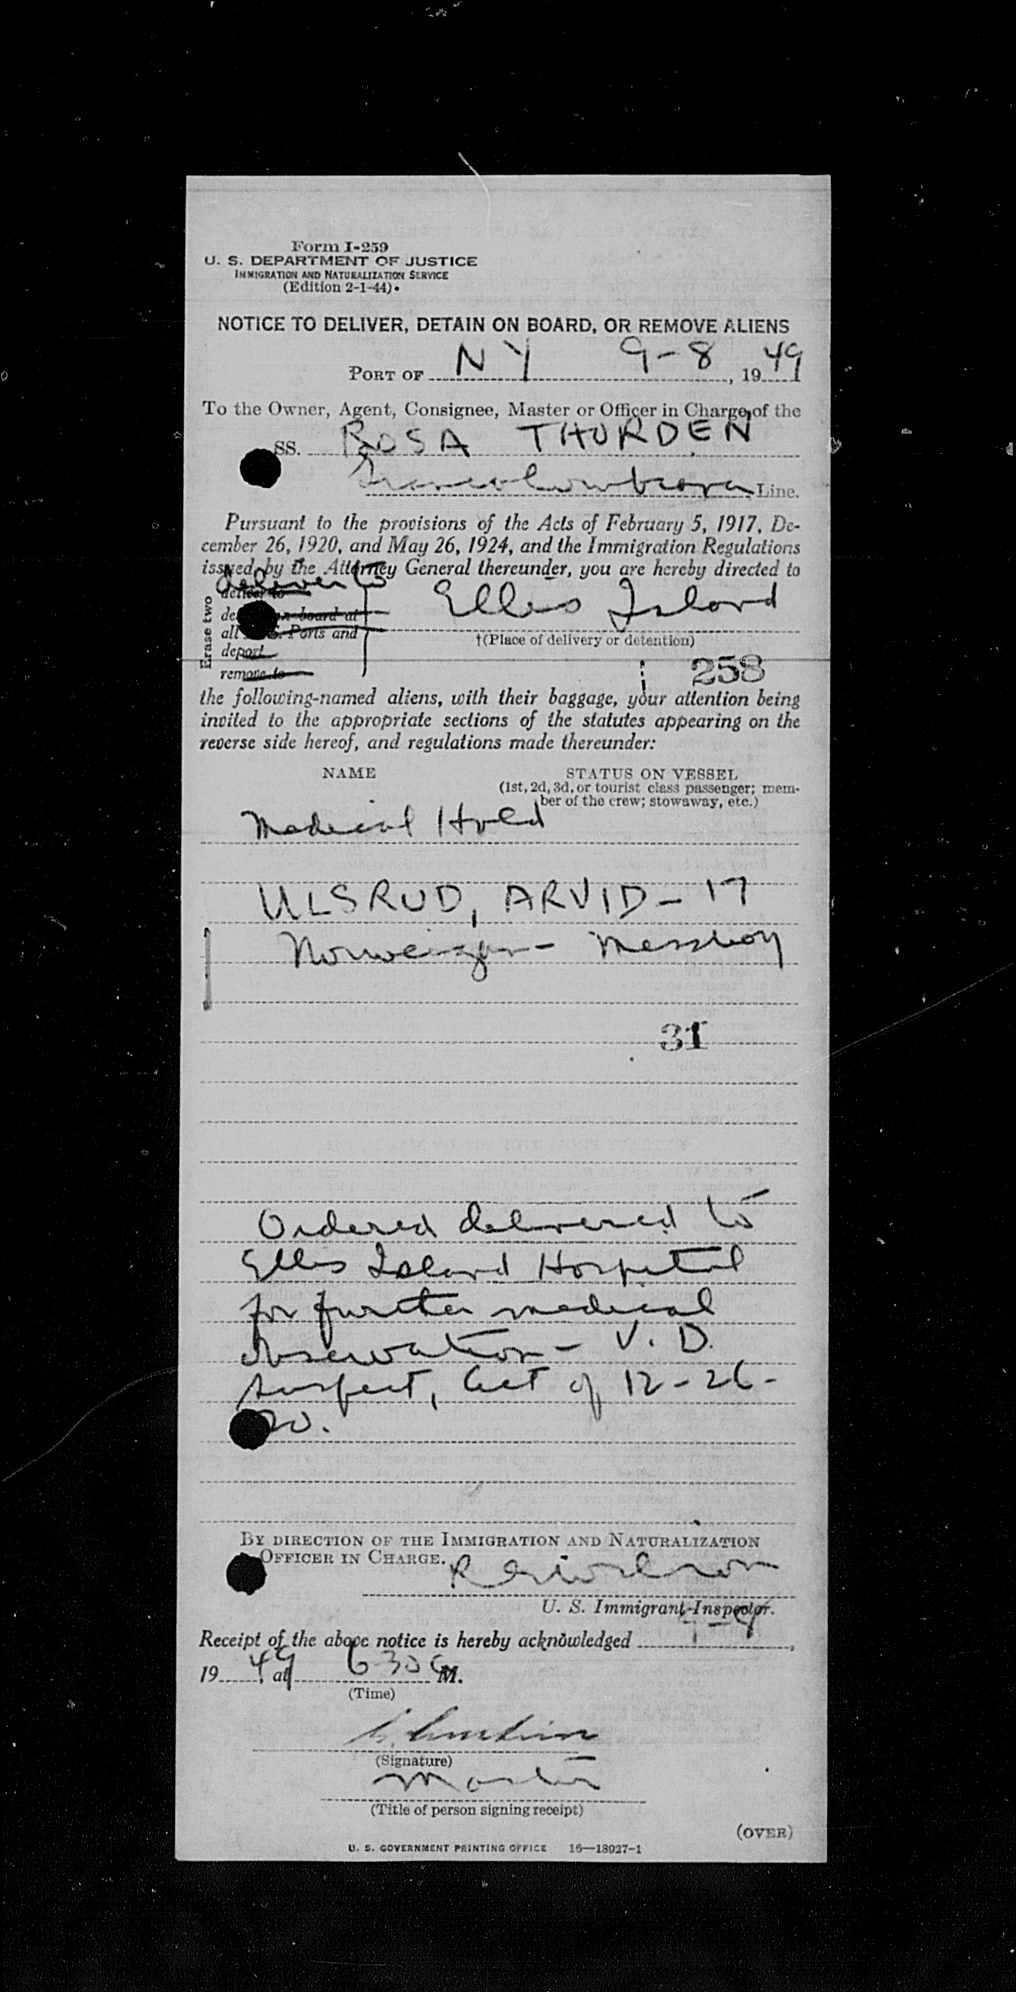 Form I-259
U. S. DEPARTMENT OF JUSTICE
IMMIGRATION AND NATURALIZATION SERVICE
(Edition 2-1-44)
NOTICE TO DELIVER, DETAIN ON BOARD, OR REMOVE ALIENS
PORT OF NY 9-8, 1949
To the Owner, Agent, Consignee, Master or Officer in Charge of the
SS. ROSA THORDEN
Line.
Pursuant to the provisions of the Acts of February 5, 1917, De-
cember 26, 1920, and May 26, 1924, and the Immigration Regulations
issued by the Attorney General thereunder, you are hereby directed to
deliver to
deliver to Ellis Island
board at
all U.S. Ports and †(Place of delivery or detention)
deport
remove to 258
Erase two
the following-named aliens, with their baggage, your attention being
invited to the appropriate sections of the statutes appearing on the
reverse side hereof, and regulations made thereunder:
NAME STATUS ON VESSEL
(1st, 2d, 3d, or tourist class passenger; mem-
ber of the crew; stowaway, etc.)
Medical Hold
ULSRUD, ARVID - 17
Norweigan - Messboy
31
Ordered delivered to
Ellis Island Hospital
for further medical
observation - V. D.
suspect, Act of 12-26-
20.
BY DIRECTION OF THE IMMIGRATION AND NATURALIZATION
OFFICER IN CHARGE.
U. S. Immigrant Inspector.
Receipt of the above notice is hereby acknowledged 9-9,
1949, at 6 30 a M.
(Time)
(Signature)
Master
(Title of person signing receipt)
(OVER)
U. S. GOVERNMENT PRINTING OFFICE 16—18027-1